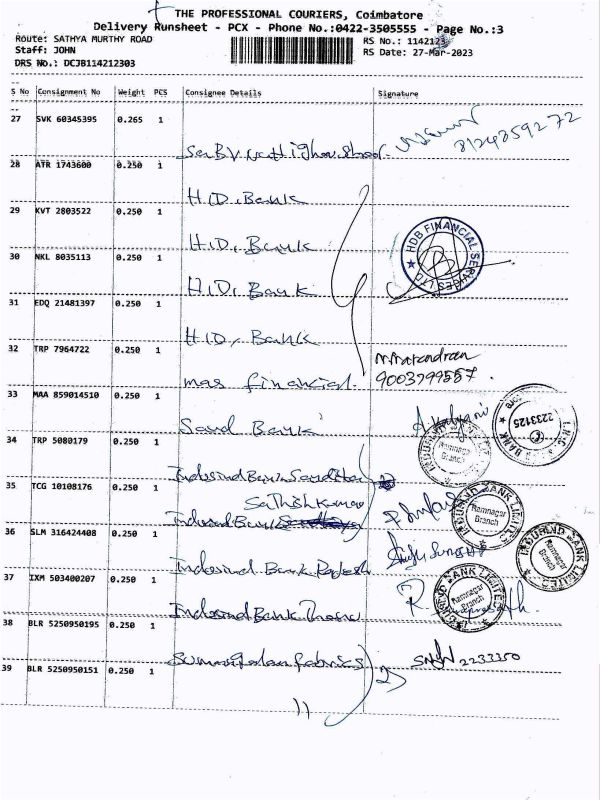 THE PROFESSIONAL COURIERS, Coimbatore
Delivery Runsheet - PCX - Phone No.:0422-3505555 - Page No.:3
Route: SATHYA MURTHY ROAD
RS No.: 1142123
Staff: JOHN
RS Date: 27-Mar-2023
DRS No.: DCJB114212303
S No Consignment No Weight PCS Consignee Details Signature
27 SVK 60345395 0.265 1
8124859272
28 ATR 1743600 0.250 1
H.D. Bank
29 KVT 2803522 0.250 1
H.D. Bank
HDB FINANCIAL SERVICES LTD
30 NKL 8035113 0.250 1
H.D. Bank
31 EDQ 21481397 0.250 1
H.D. Bank
32 TRP 7964722 0.250 1
mas financial.
33 MAA 859014510 0.250 1
Bank
2233125
BANK
34 TRP 5080179 0.250 1
Indusind Bank
Ramnagar Branch
35 TCG 10108176 0.250 1
Sathishkumar
Indusind Bank
INDUSIND BANK LIMITED
Ramnagar Branch
36 SLM 316424408 0.250 1
Indusind Bank Rajesh
INDUSIND BANK LIMITED
Ramnagar Branch
37 IXM 503400207 0.250 1
Indusind Bank
INDUSIND BANK LIMITED
Ramnagar Branch
38 BLR 5250950195 0.250 1
fabrics
2233350
39 BLR 5250950151 0.250 1
11